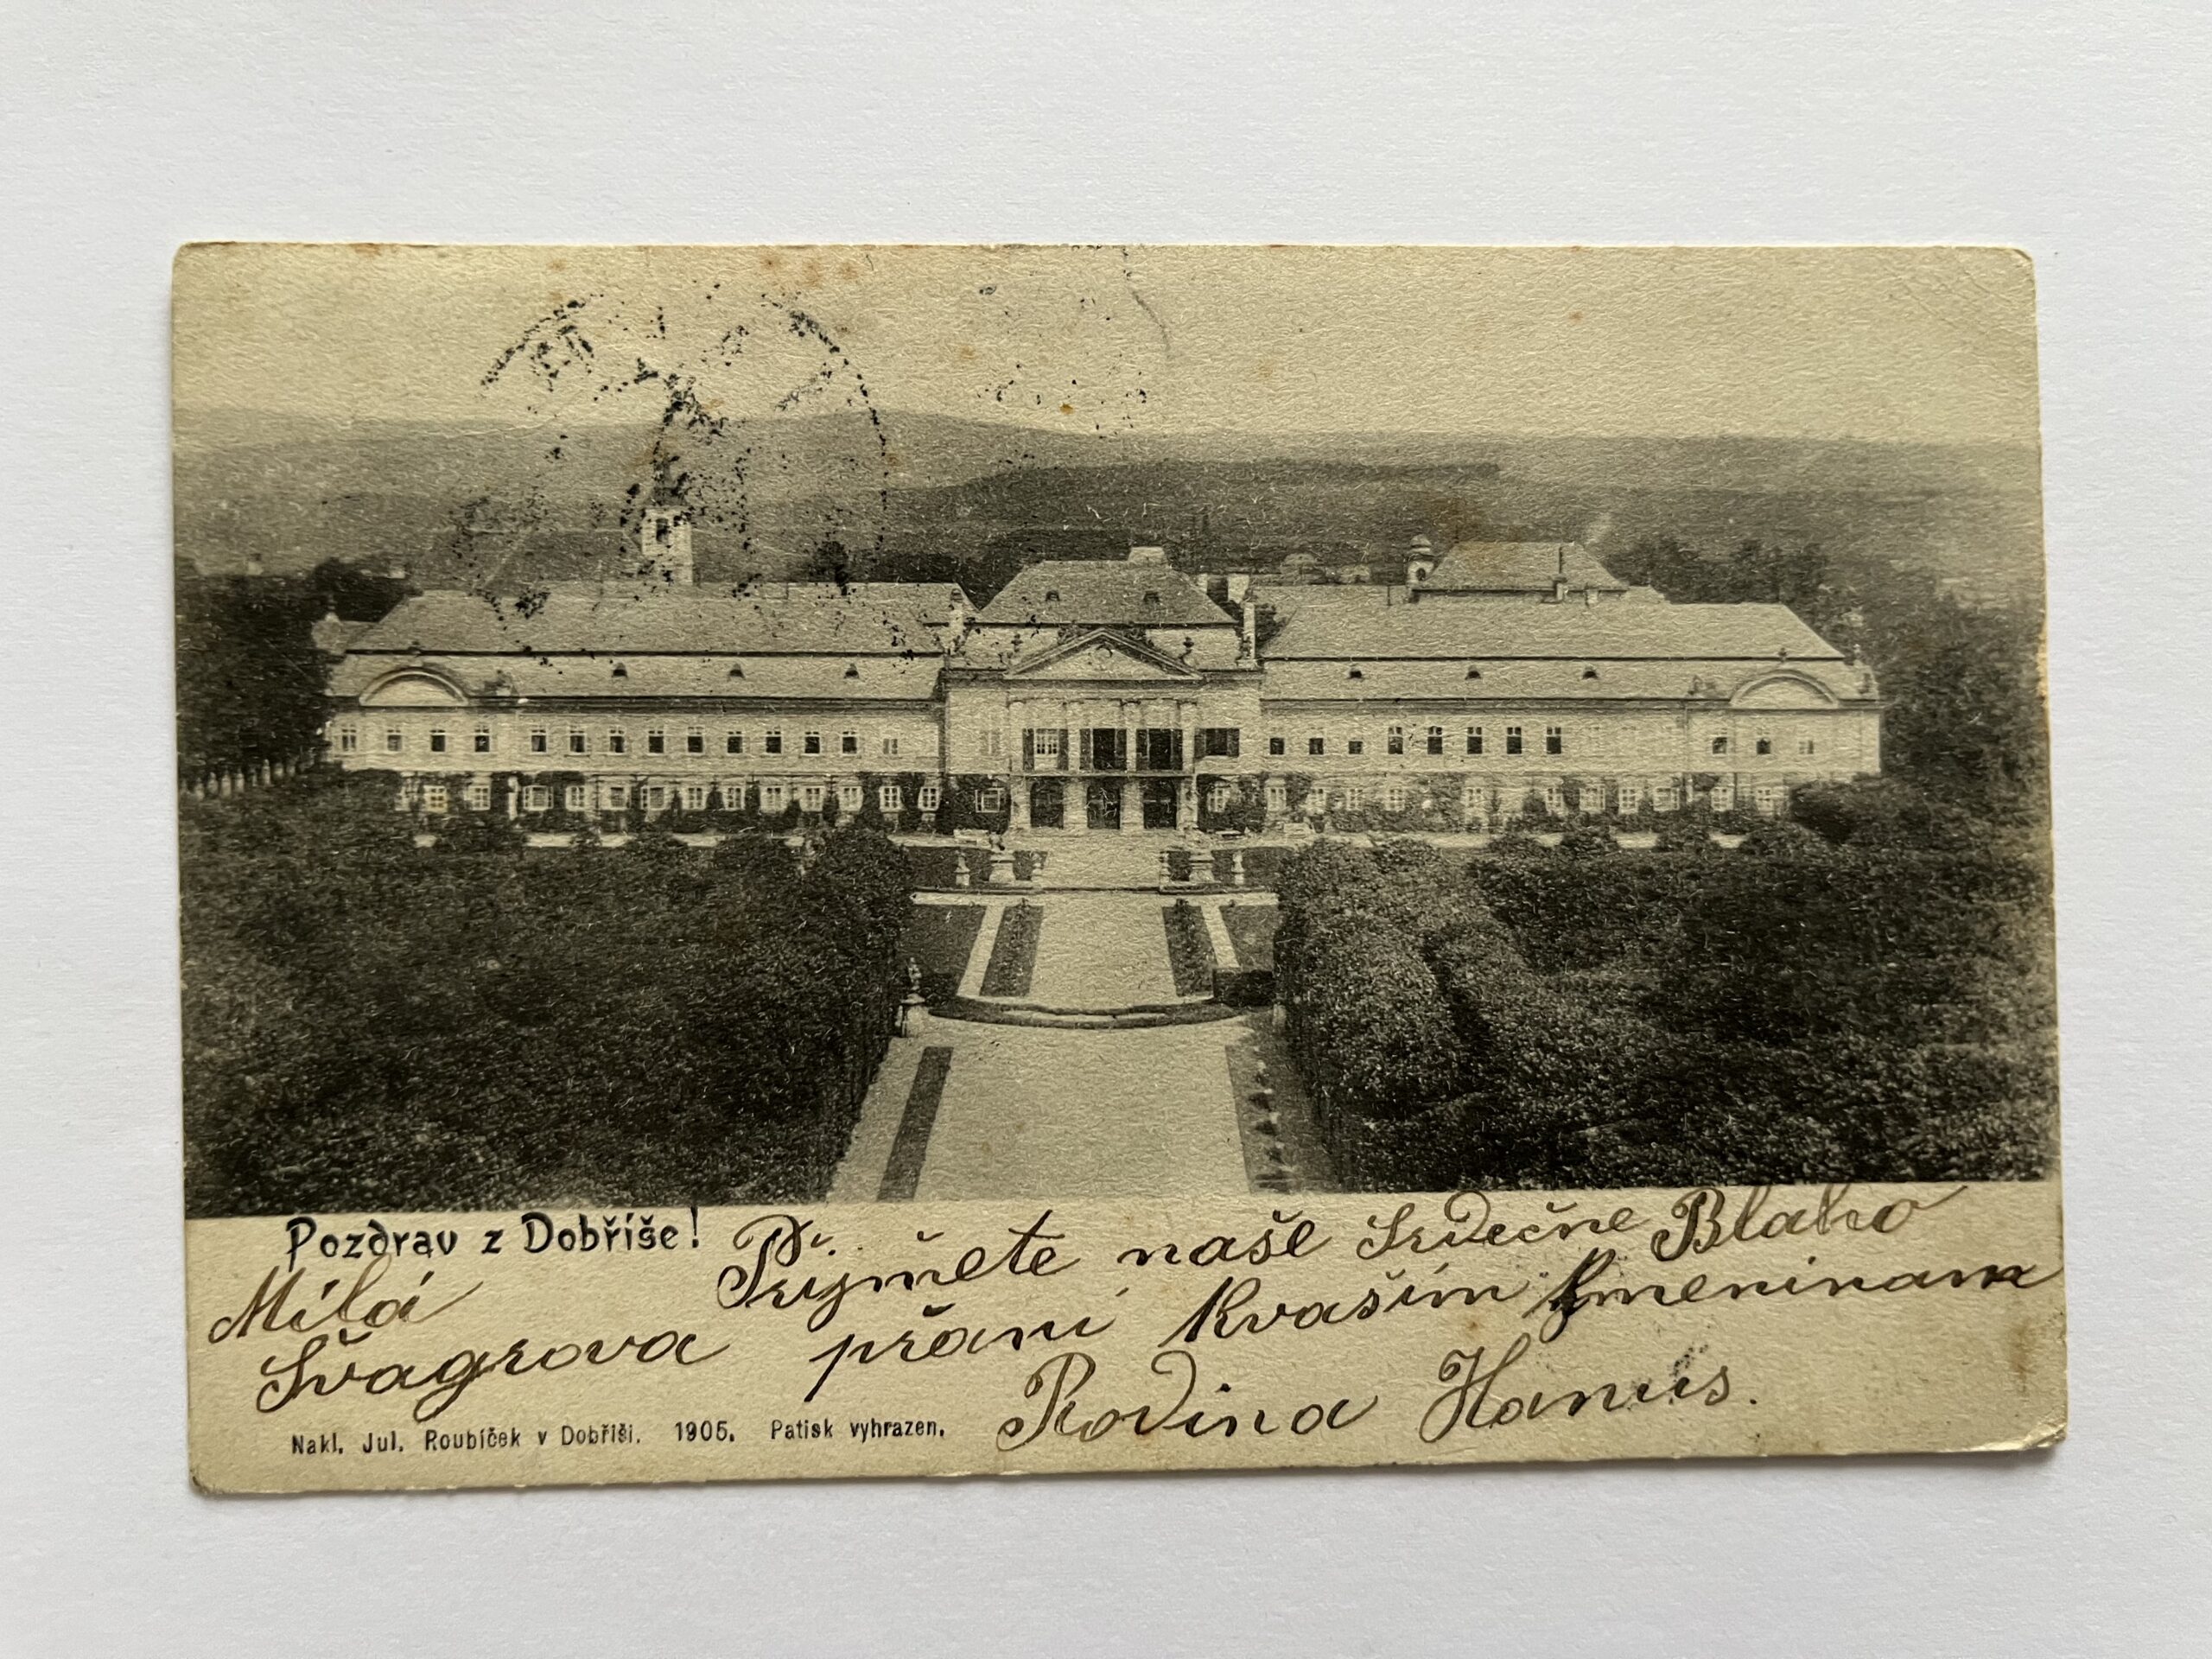 Pozdrav z Dobříše!
Milá
Švagrova
Přijměte naše Srdečne Blaho
přání Kvašim Jmeninam
Rodina Hanus.
Nakl. Jul. Roubíček v Dobříši. 1905. Patisk vyhrazen.